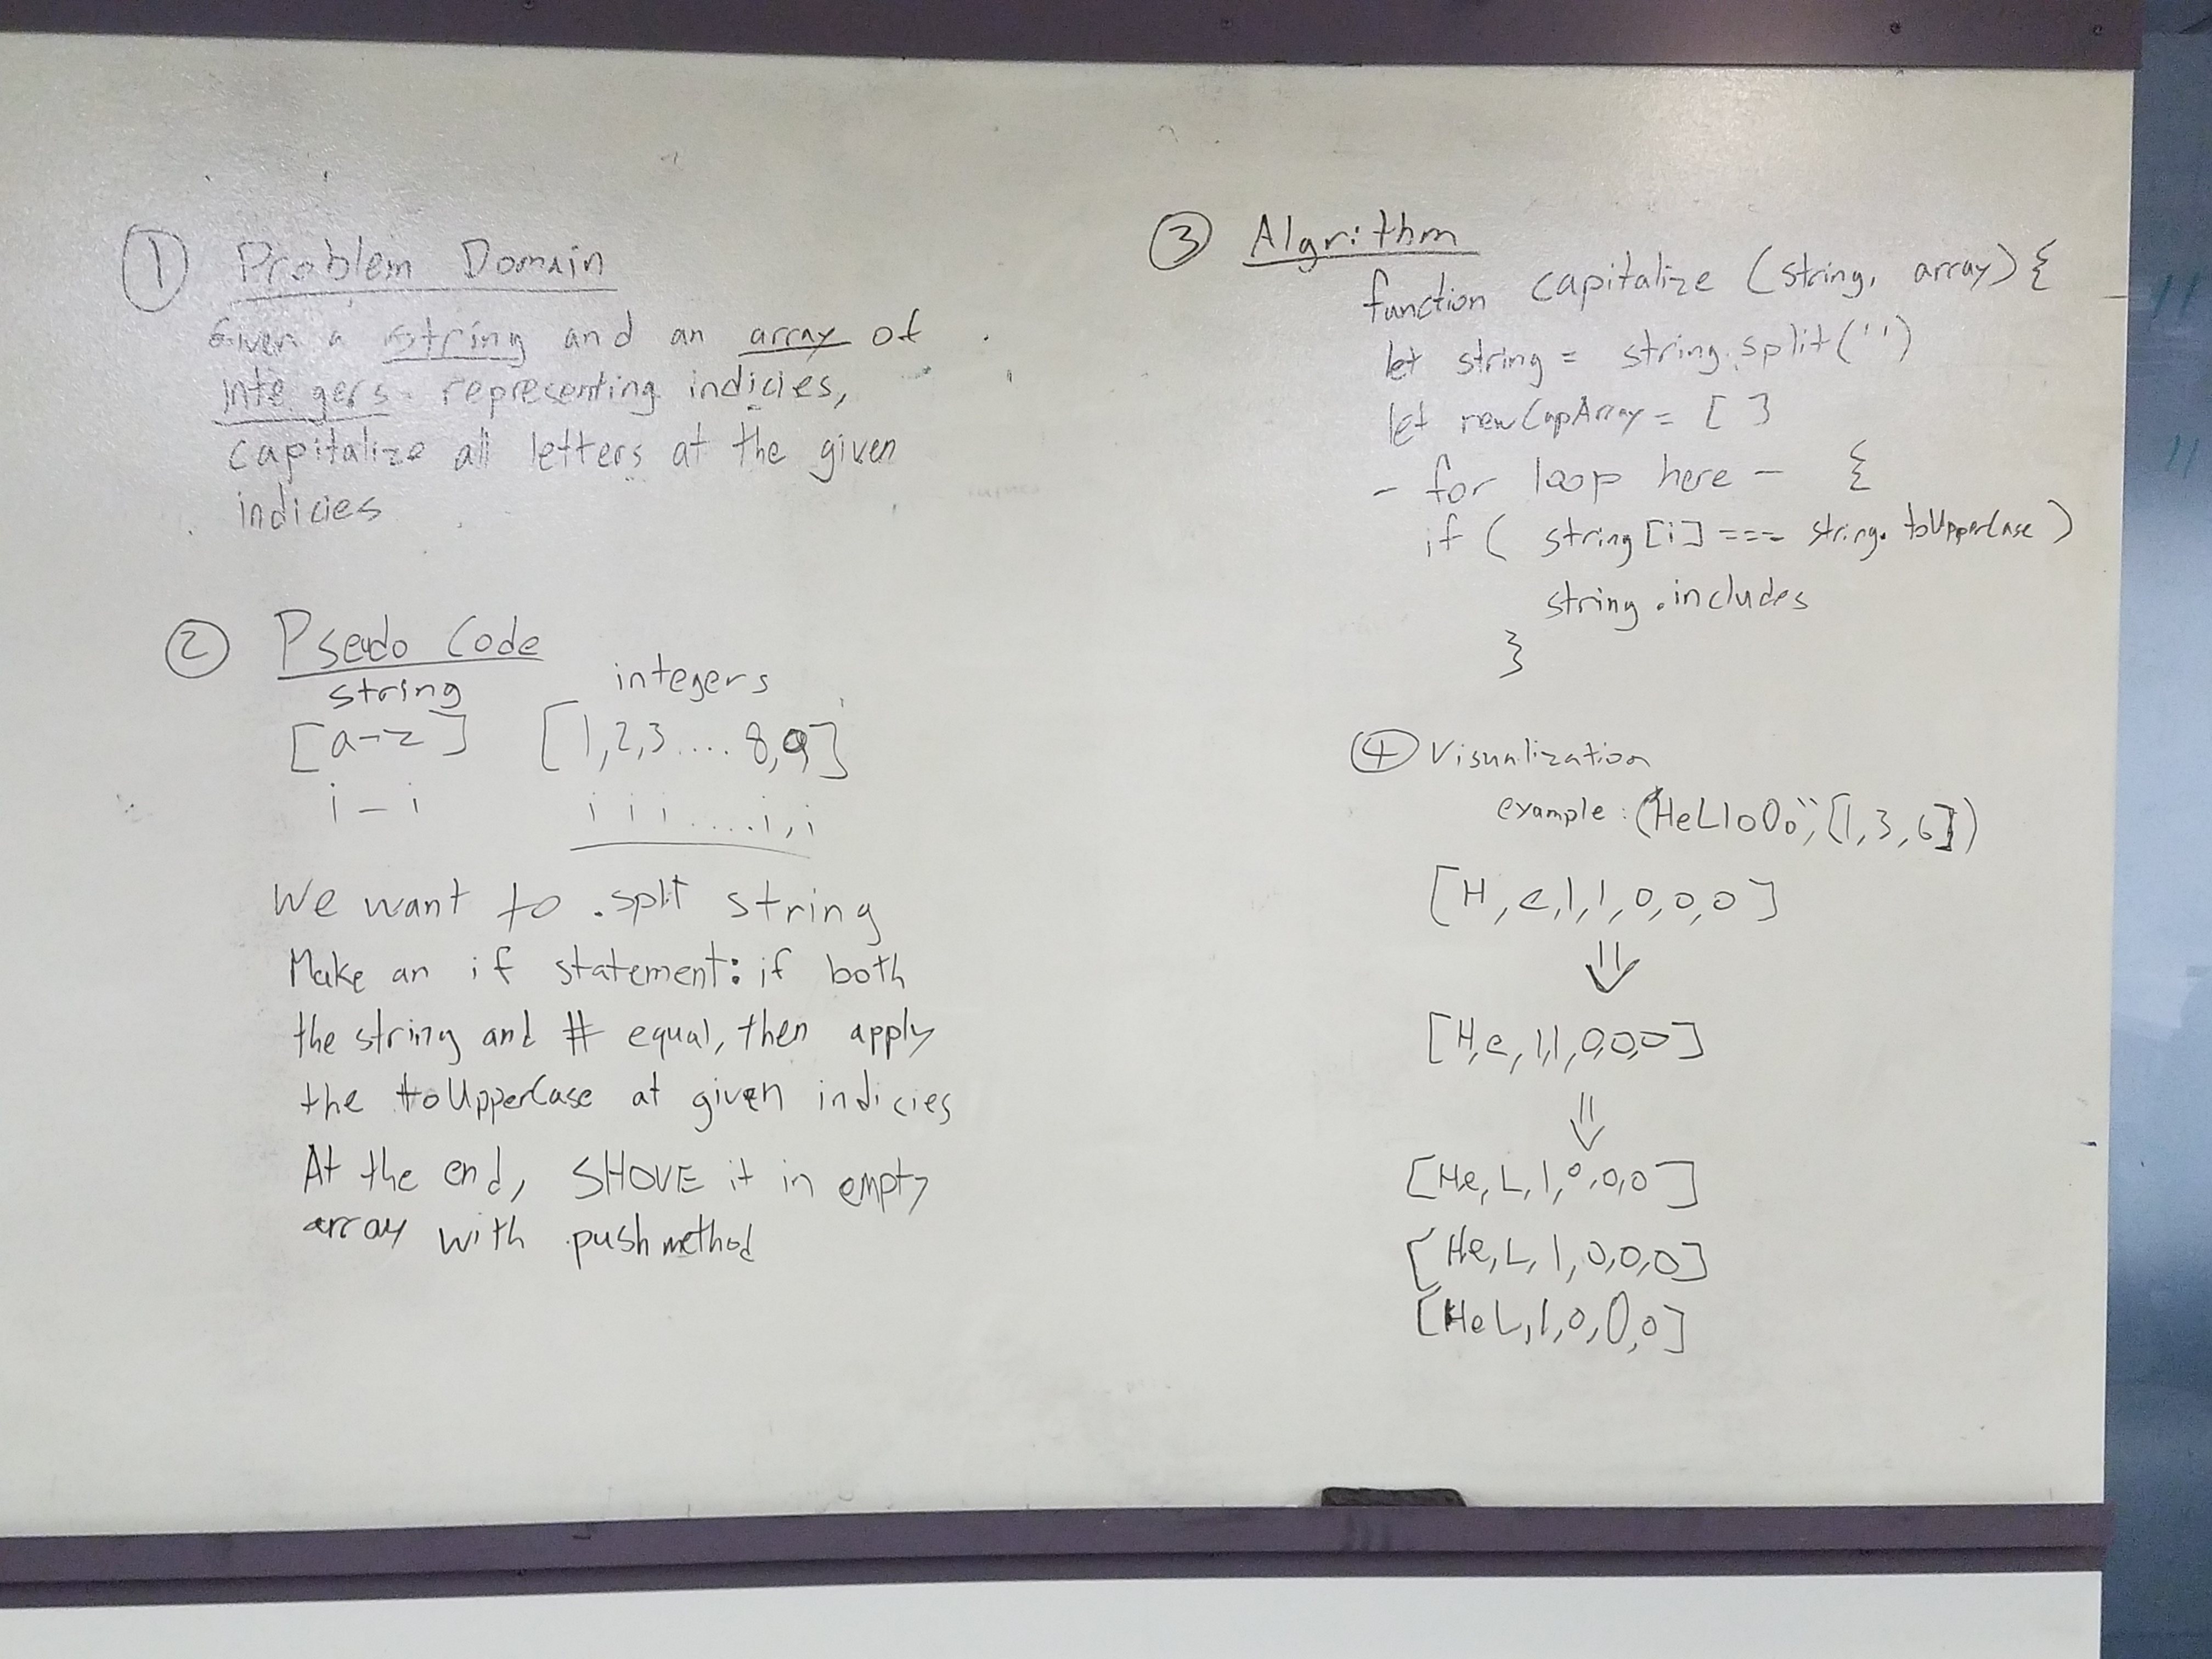 ① Problem Domain
Given a string and an array of
integers representing indicies,
capitalize all letters at the given
indicies
② Pseudo Code
string integers
[a-z] [1,2,3....8,9]
i - i i i i ....i,i
We want to .split string
Make an if statement: if both
the string and # equal, then apply
the toUpperCase at given indicies
At the end, SHOVE it in empty
array with push method
③ Algrithm
function capitalize (string, array) {
let string = string.split('')
let newCapArray = [ ]
- for loop here - {
if ( string [i] === string. toUpperCase )
string .includes
}
④ Visualization
example: ("HeLloOo", [1,3,6])
[H,e,l,l,o,o,o]
⇓
[H,e,l,l,o,o,o]
⇓
[He,L,l,o,o,o]
[He,L,l,o,o,o]
[HeL,l,o,O,o]